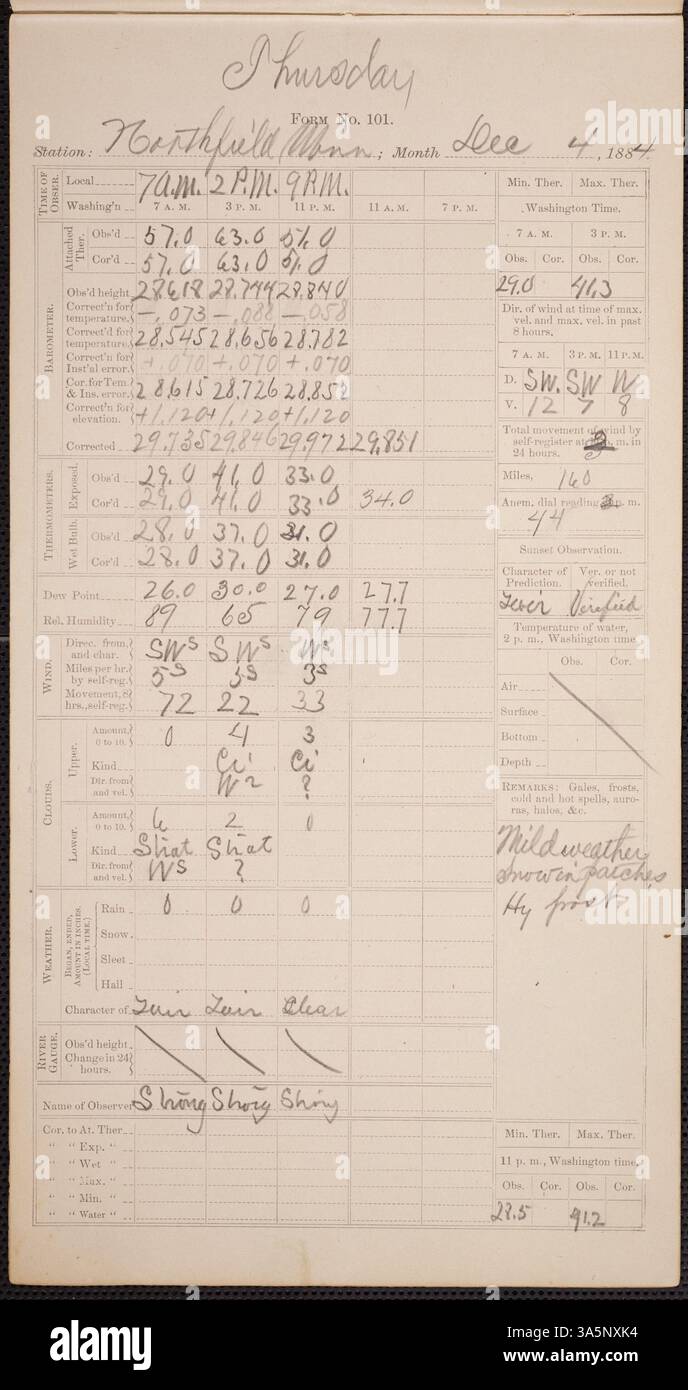 Thursday
FORM No. 101.
Station: Northfield, Minn; Month Dec 4, 1884.
TIME OF OBSER.
Local 7 A.M. 2 P.M. 9 P.M.
Washing'n 7 A. M. 3 P. M. 11 P. M. 11 A. M. 7 P. M.
BAROMETER.
Attached Ther.
Obs'd 57.0 63.0 51.0
Cor'd 57.0 63.0 51.0
Obs'd height 28.618 28.744 28.840
Correct'n for temperature. -.073 -.088 -.058
Correct'd for temperature. 28.545 28.656 28.782
Correct'n for Inst'al error. +.070 +.070 +.070
Cor. for Tem. & Ins. error. 28.615 28.726 28.852
Correct'n for elevation. +1.120 +1.120 +1.120
Corrected 29.735 29.846 29.972 29.851
THERMOMETERS.
Exposed.
Obs'd 29.0 41.0 33.0
Cor'd 29.0 41.0 33.0 34.0
Wet Bulb.
Obs'd 28.0 37.0 31.0
Cor'd 28.0 37.0 31.0
Dew Point 26.0 30.0 27.0 27.7
Rel. Humidity 89 65 79 77.7
WIND.
Direc. from, and char. SW s SW s W s
Miles per hr. by self-reg. 5 s 3 s 3 s
Movement, 8 hrs., self-reg. 72 22 33
CLOUDS.
Upper.
Amount, 0 to 10. 0 4 3
Kind Ci Ci
Dir. from and vel. W 2 ?
Lower.
Amount, 0 to 10. 6 2 0
Kind Strat Strat
Dir. from and vel. W s ?
WEATHER.
BEGAN, ENDED, AMOUNT IN INCHES. (LOCAL TIME.)
Rain 0 0 0
Snow
Sleet
Hail
Character of Fair Fair Clear
RIVER GAUGE.
Obs'd height
Change in 24 hours.
Name of Observer Strong Strong Strong
Cor. to At. Ther
" " Exp. "
" " Wet "
" " Max. "
" " Min. "
" " Water "
Min. Ther. Max. Ther.
Washington Time.
7 A. M. 3 P. M.
Obs. Cor. Obs. Cor.
29.0 41.3
Dir. of wind at time of max. vel. and max. vel. in past 8 hours.
7 A. M. 3 P. M. 11 P. M.
D. SW. SW W
V. 12 7 8
Total movement of wind by self-register at m. in 24 hours.
Miles, 160
Anem. dial reading p. m.
44
Sunset Observation.
Character of Prediction. Ver. or not verified.
Fair Verified
Temperature of water, 2 p. m., Washington time.
Obs. Cor.
Air
Surface
Bottom
Depth
REMARKS: Gales, frosts, cold and hot spells, auroras, halos, &c.
Mild weather
Snow in patches
Hy frost
Min. Ther. Max. Ther.
11 p. m., Washington time.
Obs. Cor. Obs. Cor.
28.5 41.2
alamy
Image ID: 3A5NXK4
www.alamy.com